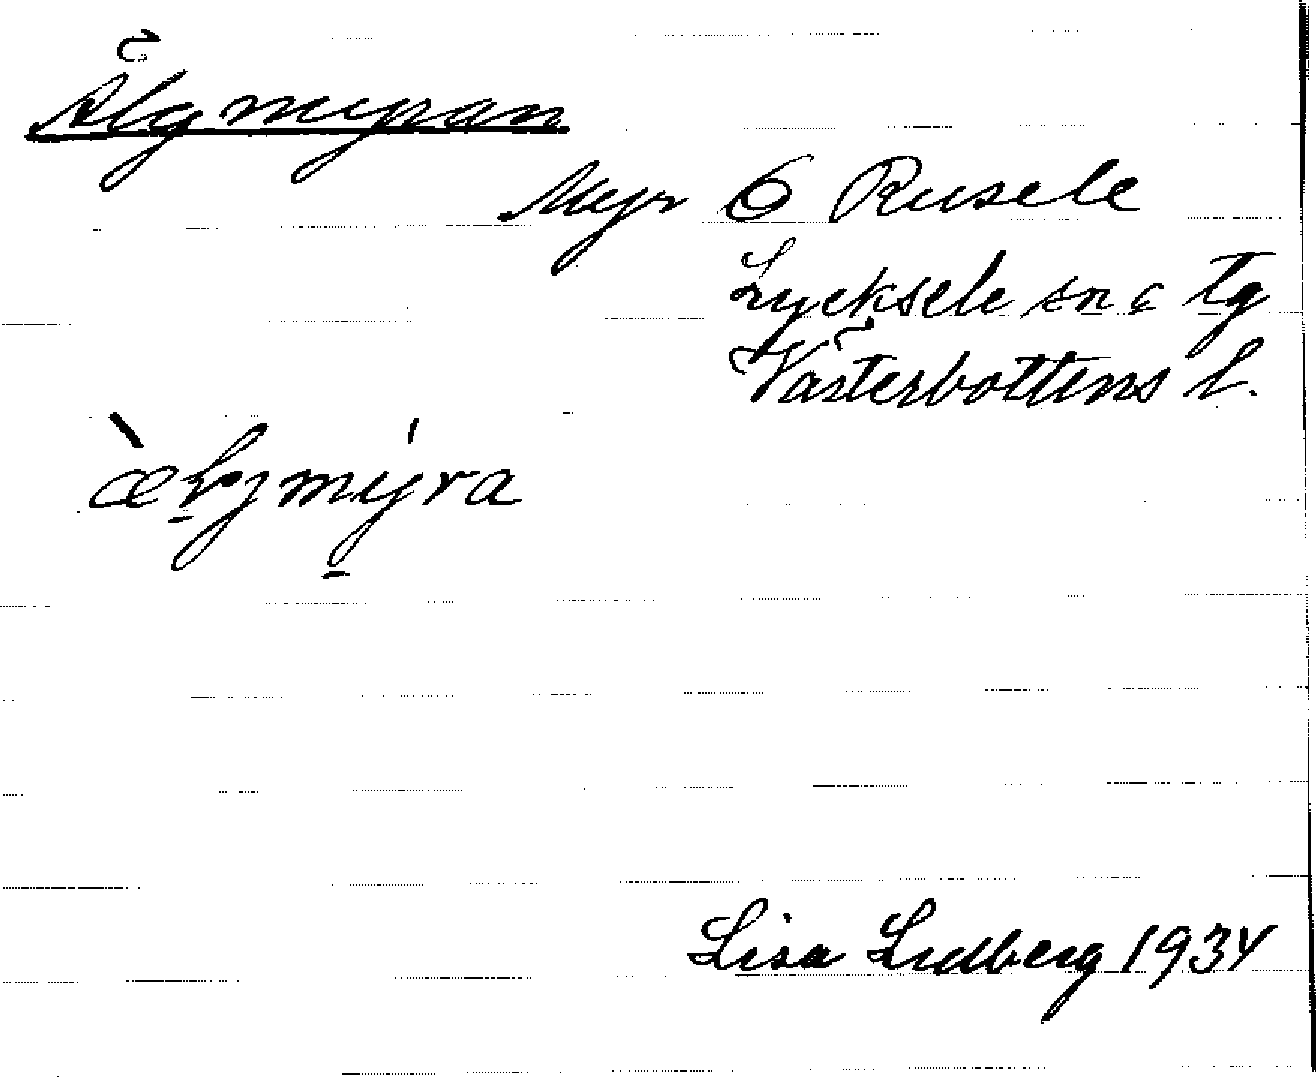 Älgmyran
Myr 6 Rusele
Lycksele sn o tg
Västerbottens l.
æļgmy̱ra
Lisa Lidberg 1934